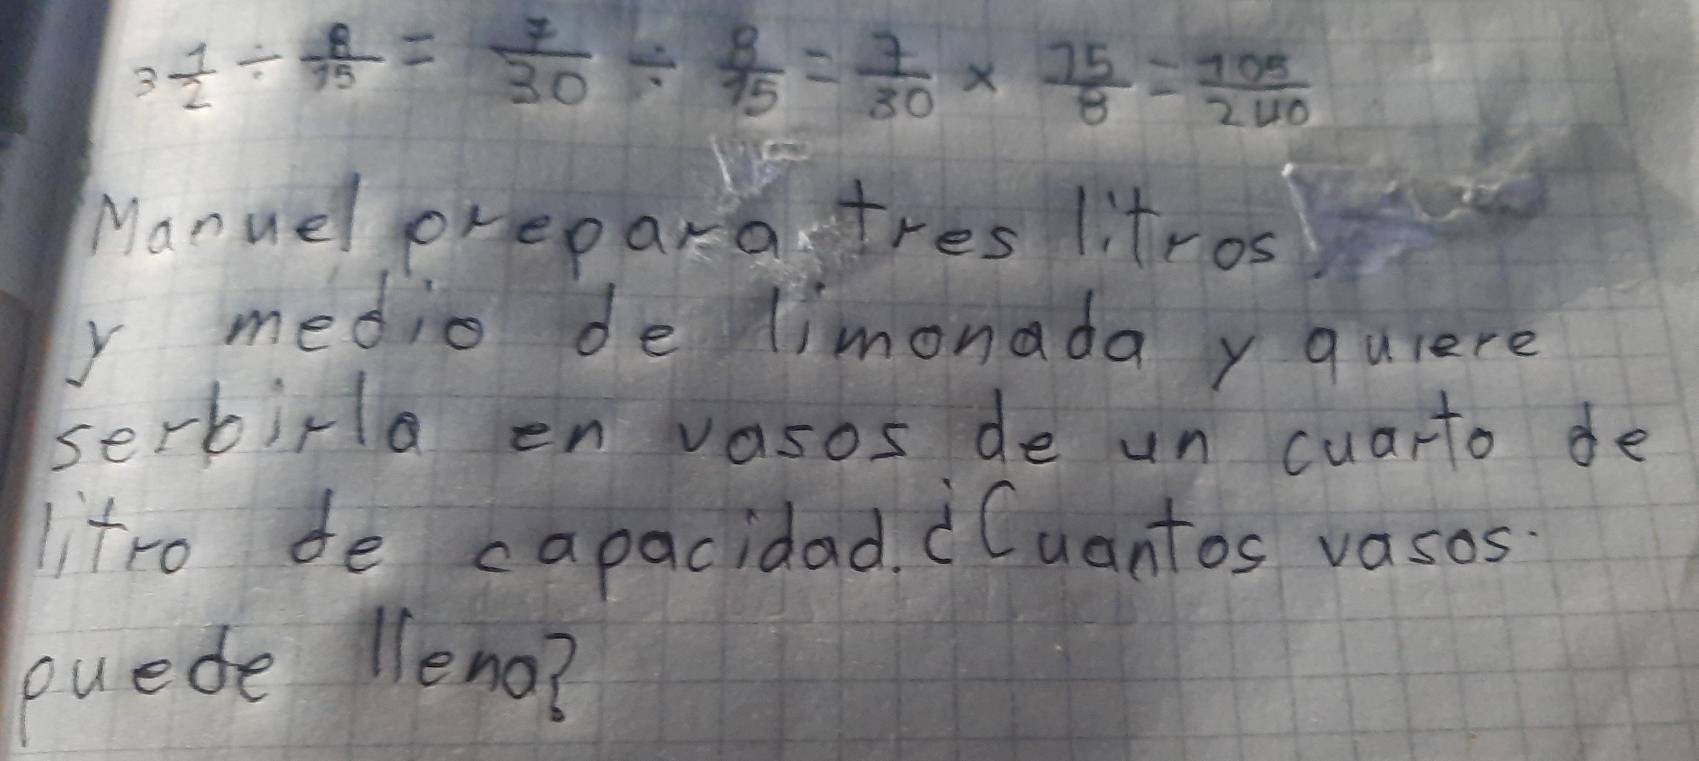 3 1/2 ÷ 8/15 = 7/30 ÷ 8/15 = 7/30 × 15/8 = 105/240
Manuel prepara tres litros
y medio de limonada y quiere
serbirla en vasos de un cuarto de
litro de capacidad. ¿Cuantos vasos
puede llena?